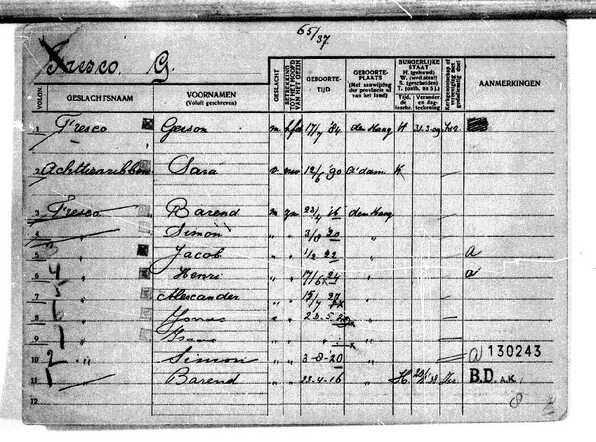 65/37
Fresco. G.
VOLGN. GESLACHTSNAAM VOORNAMEN (Voluit geschreven) GESLACHT GEBOORTE-TIJD GEBOORTE-PLAATS (Met aanwijzing der provincie of van het land) BURGERLIJKE STAAT H. (gehuwd) W. (wed.staat) S. (gescheiden) T. (ontb. na 5 j.) AANMERKINGEN
1 Fresco Gerson m hfd 17/7 '84 den Haag H 31.3.09 Isr.
2 Achttienribben Sara v vrw 12/6 '90 A'dam H
3 Fresco Barend m zn 23/4 '16 den Haag
4 " Simon " " 3/8 20 "
5 " Jacob " " 1/2 22 " a
6 4 " Henri " " 17/6 24 " a
7 5 " Alexander " " 15/7 27 "
8 6 " Jonas " " "
9 1 " Isaac
10 2 " Simon 3-8-20 a 130243
11 1 Barend 23-4-16 H. B.D. A.K.
12